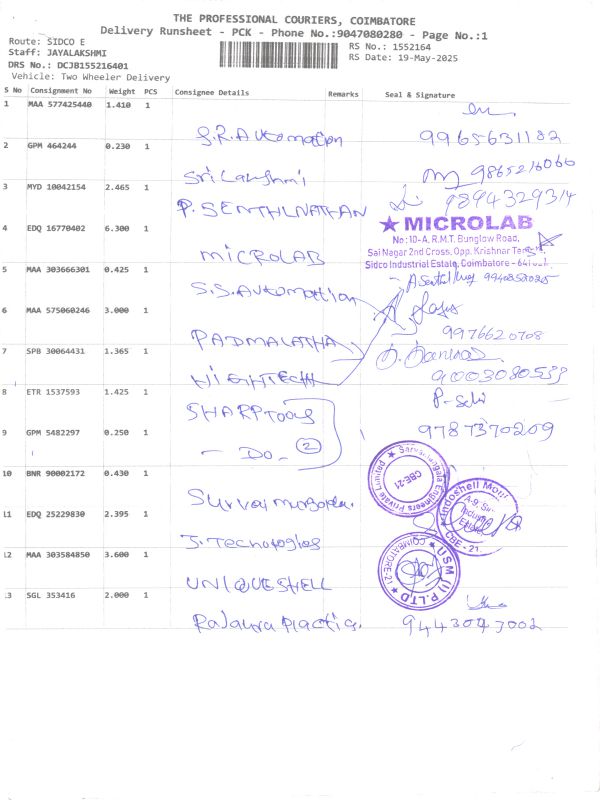 THE PROFESSIONAL COURIERS, COIMBATORE
Delivery Runsheet - PCK - Phone No.:9047080280 - Page No.:1
Route: SIDCO E
Staff: JAYALAKSHMI
DRS No.: DCJB155216401
Vehicle: Two Wheeler Delivery
RS No.: 1552164
RS Date: 19-May-2025
S No Consignment No Weight PCS Consignee Details Remarks Seal & Signature
1 MAA 577425440 1.410 1
S.R.Automation 9965631182
2 GPM 464244 0.230 1
Sri Lakshmi 9865216066
3 MYD 10042154 2.465 1
P. SENTHILNATHAN 9894329314
4 EDQ 16770402 6.300 1
MICROLAB
MICROLAB
No:10-A, R.M.T. Bunglow Road,
Sai Nagar 2nd Cross, Opp. Krishnar
Sidco Industrial Estate, Coimbatore -
5 MAA 303666301 0.425 1
S.S.Automation
6 MAA 575060246 3.000 1
PADMALATHA 9976620708
7 SPB 30064431 1.365 1
HIGHTECH 9003080533
8 ETR 1537593 1.425 1
SHARPTOOLS
9 GPM 5482297 0.250 1
- DO - 2 9787370209
10 BNR 90002172 0.430 1
Sarvamangala Engineers Private Limited
CBE-21
11 EDQ 25229830 2.395 1
Indoshell
CBE - 21
12 MAA 303584850 3.600 1
UNIQUESHELL
USM (I) P.LTD
COIMBATORE-21
13 SGL 353416 2.000 1
9443043002